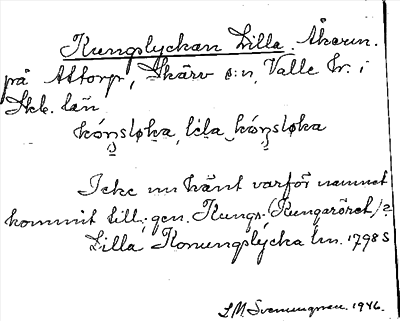 Kungslyckan Lilla. Åkern.
på Attorp, Skärv s:n, Valle hr. i
Skb. län
kóŋsløka, lela kóŋsløka
Icke nu känt varför namnet
kommit till, gen. Kungs. (Rungaröret)?
Lilla Konungslycka Lm. 1798 S
S.M. Svenungsson. 1946.